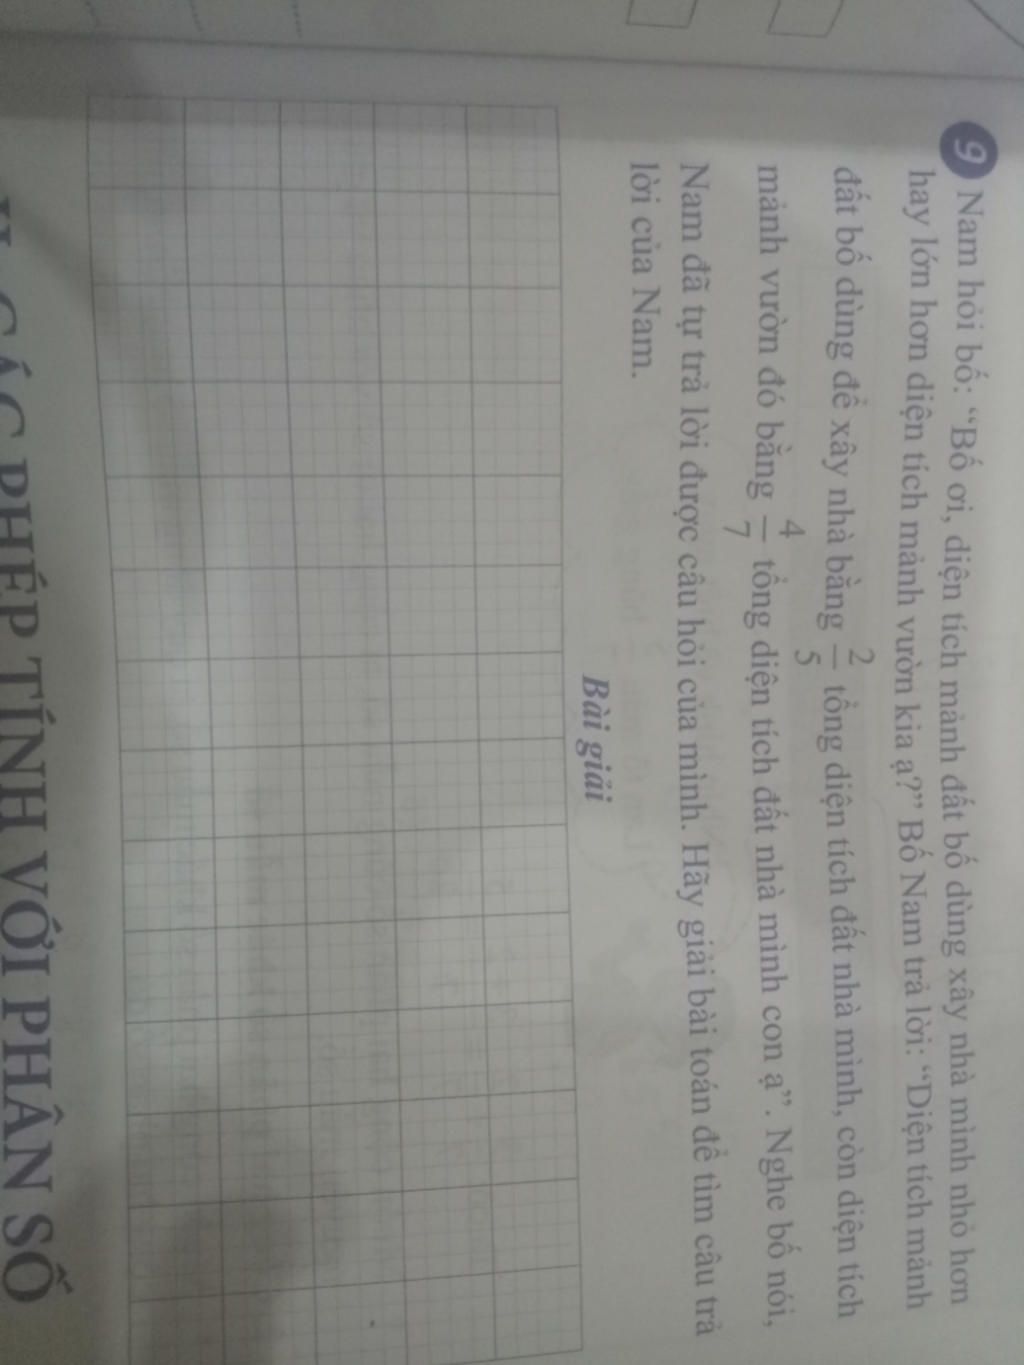 9 Nam hỏi bố: “Bố ơi, diện tích mảnh đất bố dùng xây nhà mình nhỏ hơn
hay lớn hơn diện tích mảnh vườn kia ạ?” Bố Nam trả lời: “Diện tích mảnh
đất bố dùng để xây nhà bằng 2/5 tổng diện tích đất nhà mình, còn diện tích
mảnh vườn đó bằng 4/7 tổng diện tích đất nhà mình con ạ”. Nghe bố nói,
Nam đã tự trả lời được câu hỏi của mình. Hãy giải bài toán để tìm câu trả
lời của Nam.
Bài giải
CÁC PHÉP TÍNH VỚI PHÂN SỐ